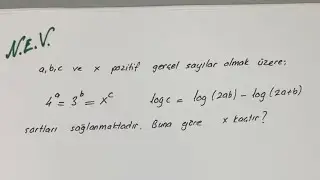 N.E.V.
a,b,c ve x pozitif gerçel sayılar olmak üzere;
4^a = 3^b = x^c log c = log (2ab) - log (2a+b)
şartları sağlanmaktadır. Buna göre x kaçtır?